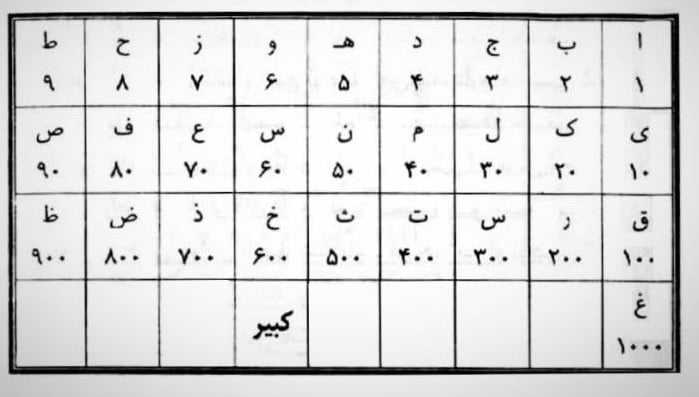 ا ب ج د هـ و ز ح ط
۱ ۲ ۳ ۴ ۵ ۶ ۷ ۸ ۹
ی ک ل م ن س ع ف ص
۱۰ ۲۰ ۳۰ ۴۰ ۵۰ ۶۰ ۷۰ ۸۰ ۹۰
ق ر س ت ث خ د ض ظ
۱۰۰ ۲۰۰ ۳۰۰ ۴۰۰ ۵۰۰ ۶۰۰ ۷۰۰ ۸۰۰ ۹۰۰
غ کبیر
۱۰۰۰